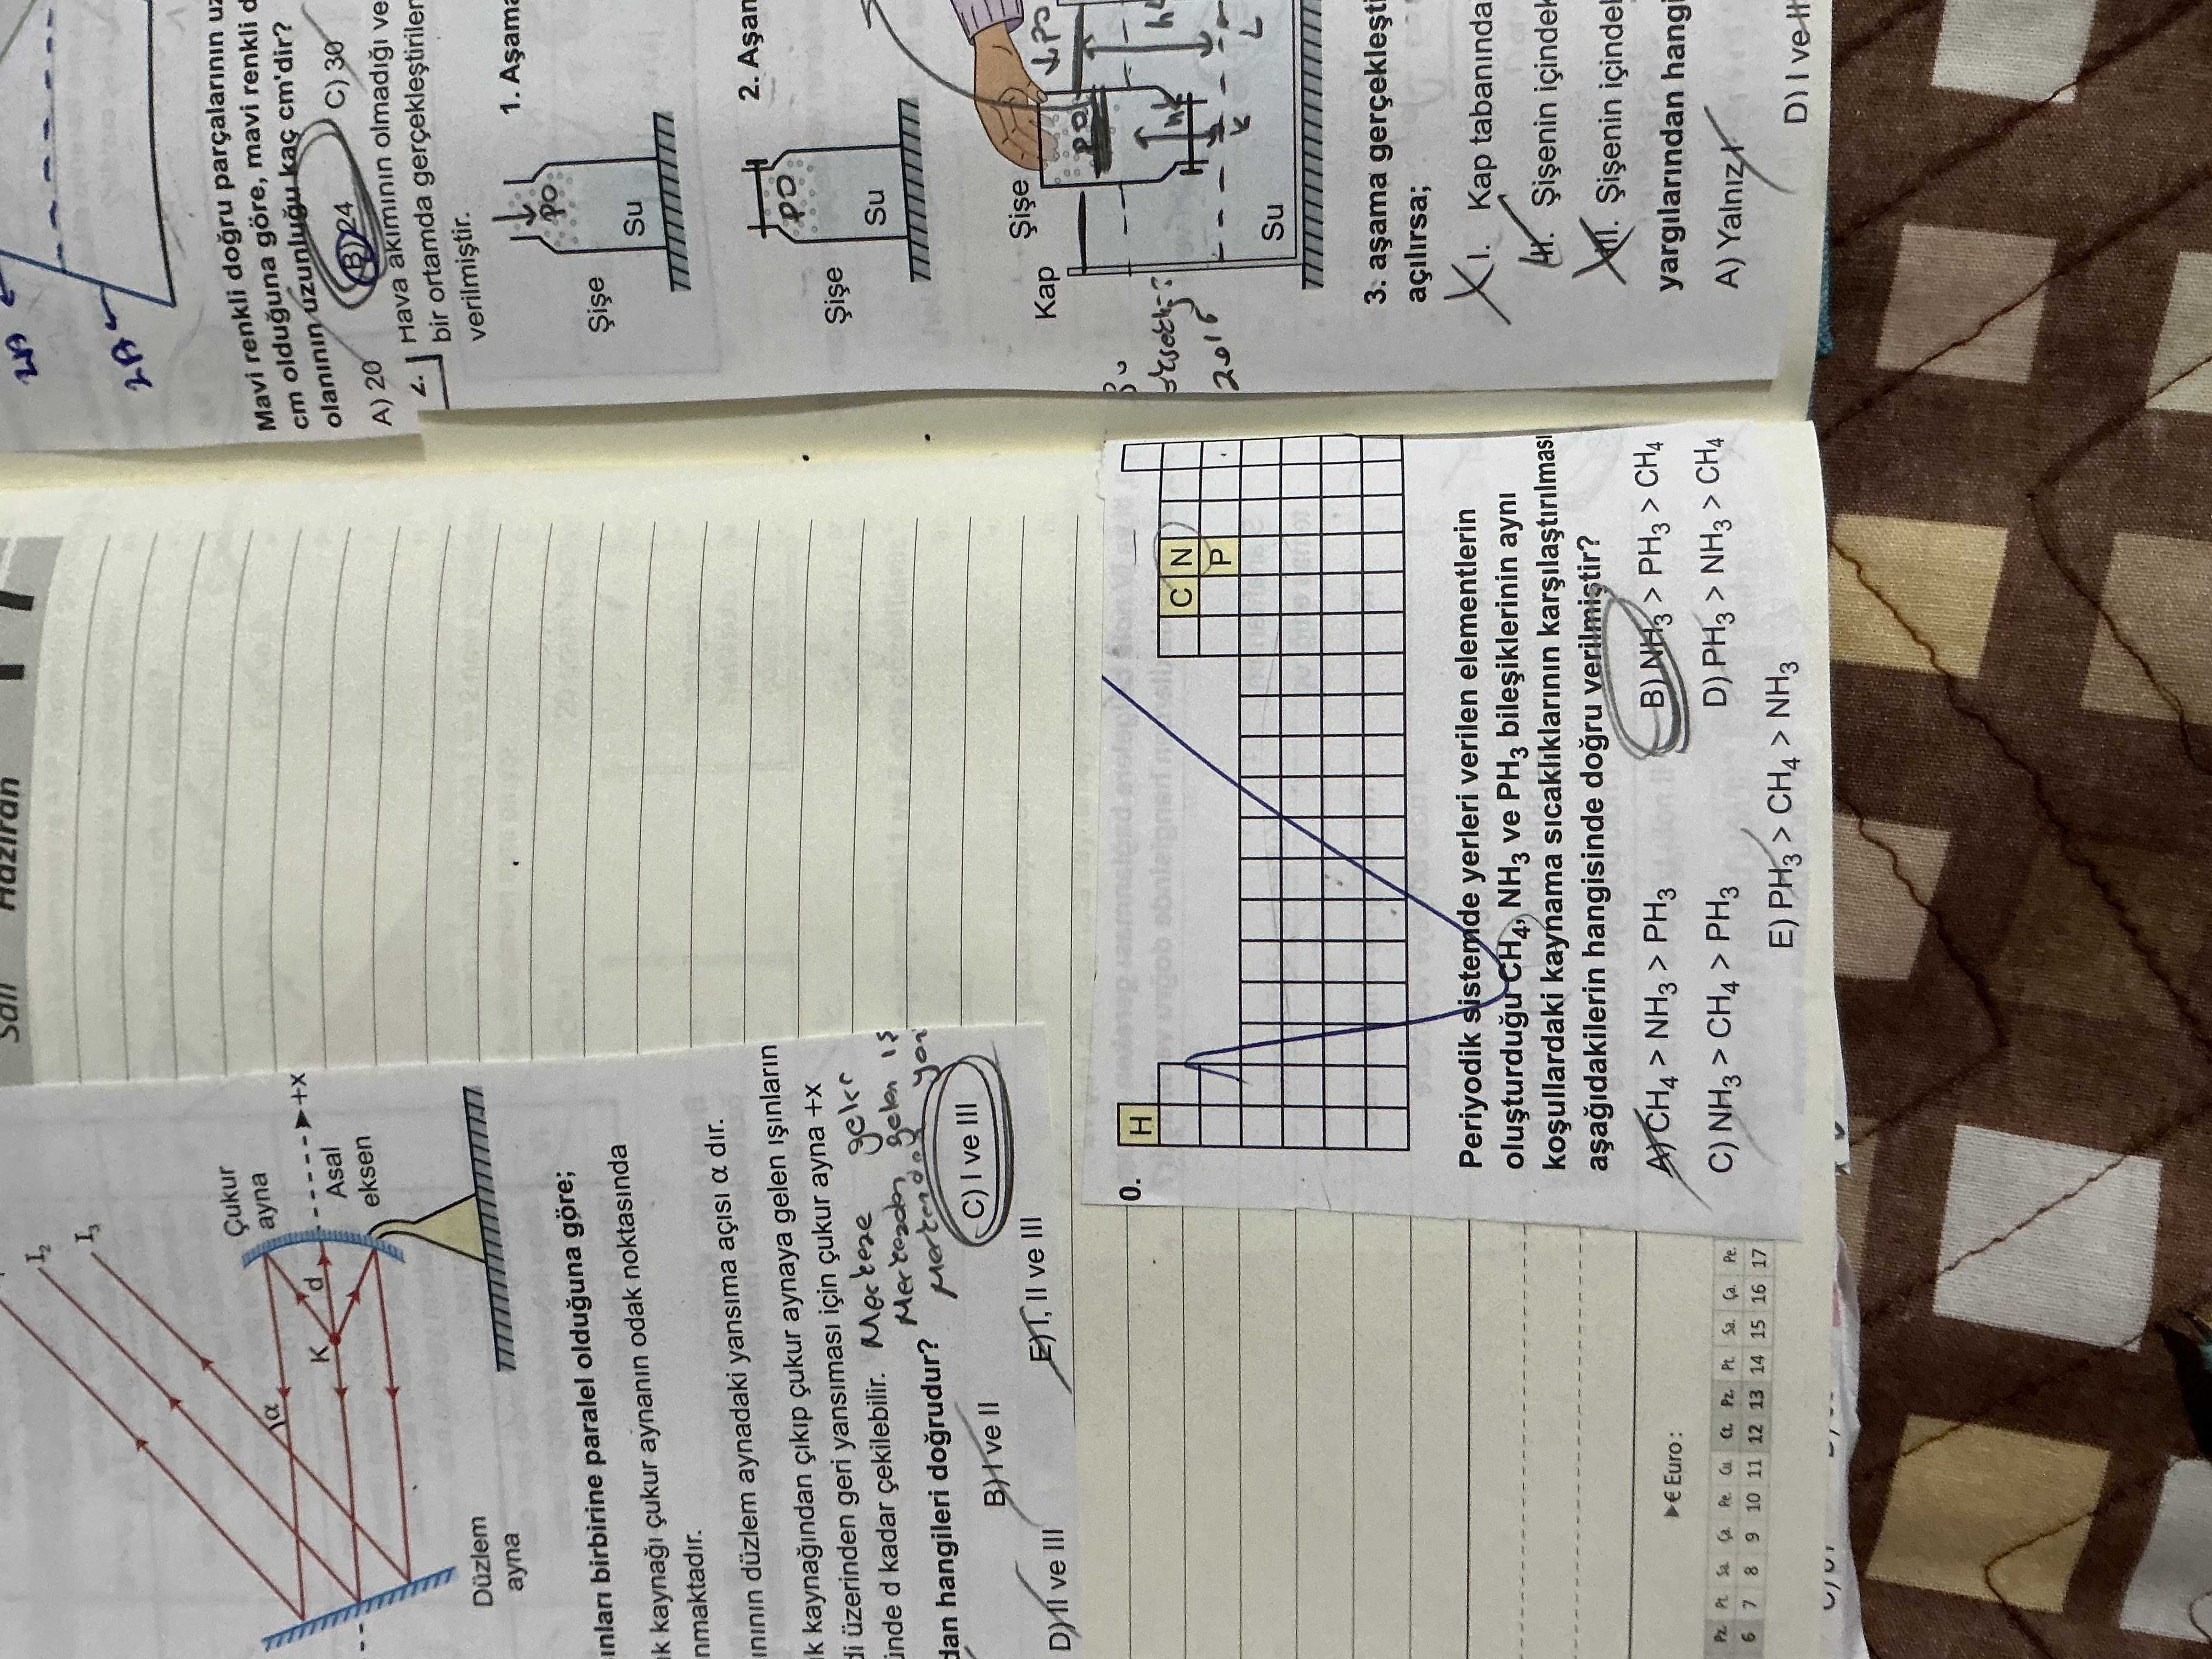 Salı Haziran
I2
I3
Çukur
ayna
+x
Asal
eksen
K
d
α
Düzlem
ayna
ınları birbirine paralel olduğuna göre;
k kaynağı çukur aynanın odak noktasında
nmaktadır.
ınının düzlem aynadaki yansıma açısı α dır.
k kaynağından çıkıp çukur aynaya gelen ışınların
di üzerinden geri yansıması için çukur ayna +x
ünde d kadar çekilebilir.
dan hangileri doğrudur?
B) I ve II
C) I ve III
D) II ve III
E) I, II ve III
0.
H
C N
P
Periyodik sistemde yerleri verilen elementlerin
oluşturduğu CH4, NH3 ve PH3 bileşiklerinin aynı
koşullardaki kaynama sıcaklıklarının karşılaştırılması
aşağıdakilerin hangisinde doğru verilmiştir?
A) CH4 > NH3 > PH3
B) NH3 > PH3 > CH4
C) NH3 > CH4 > PH3
D) PH3 > NH3 > CH4
E) PH3 > CH4 > NH3
€ Euro:
Pz. Pt. Sa. Ça. Pe. Cu. Ct. Pz. Pt. Sa. Ça. Pe.
6 7 8 9 10 11 12 13 14 15 16 17
2A
2A
Mavi renkli doğru parçalarının uz
cm olduğuna göre, mavi renkli d
olanının uzunluğu kaç cm'dir?
A) 20
B) 24
C) 30
2.
Hava akımının olmadığı ve
bir ortamda gerçekleştirilen
verilmiştir.
1. Aşama
Şişe
P0
Su
2. Aşam
Şişe
P0
Su
Kap
Şişe
P0
P0
Su
h
L
K
2016
3. aşama gerçekleşti
açılırsa;
I. Kap tabanında
II. Şişenin içindek
III. Şişenin içindek
yargılarından hangi
A) Yalnız I
D) I ve II